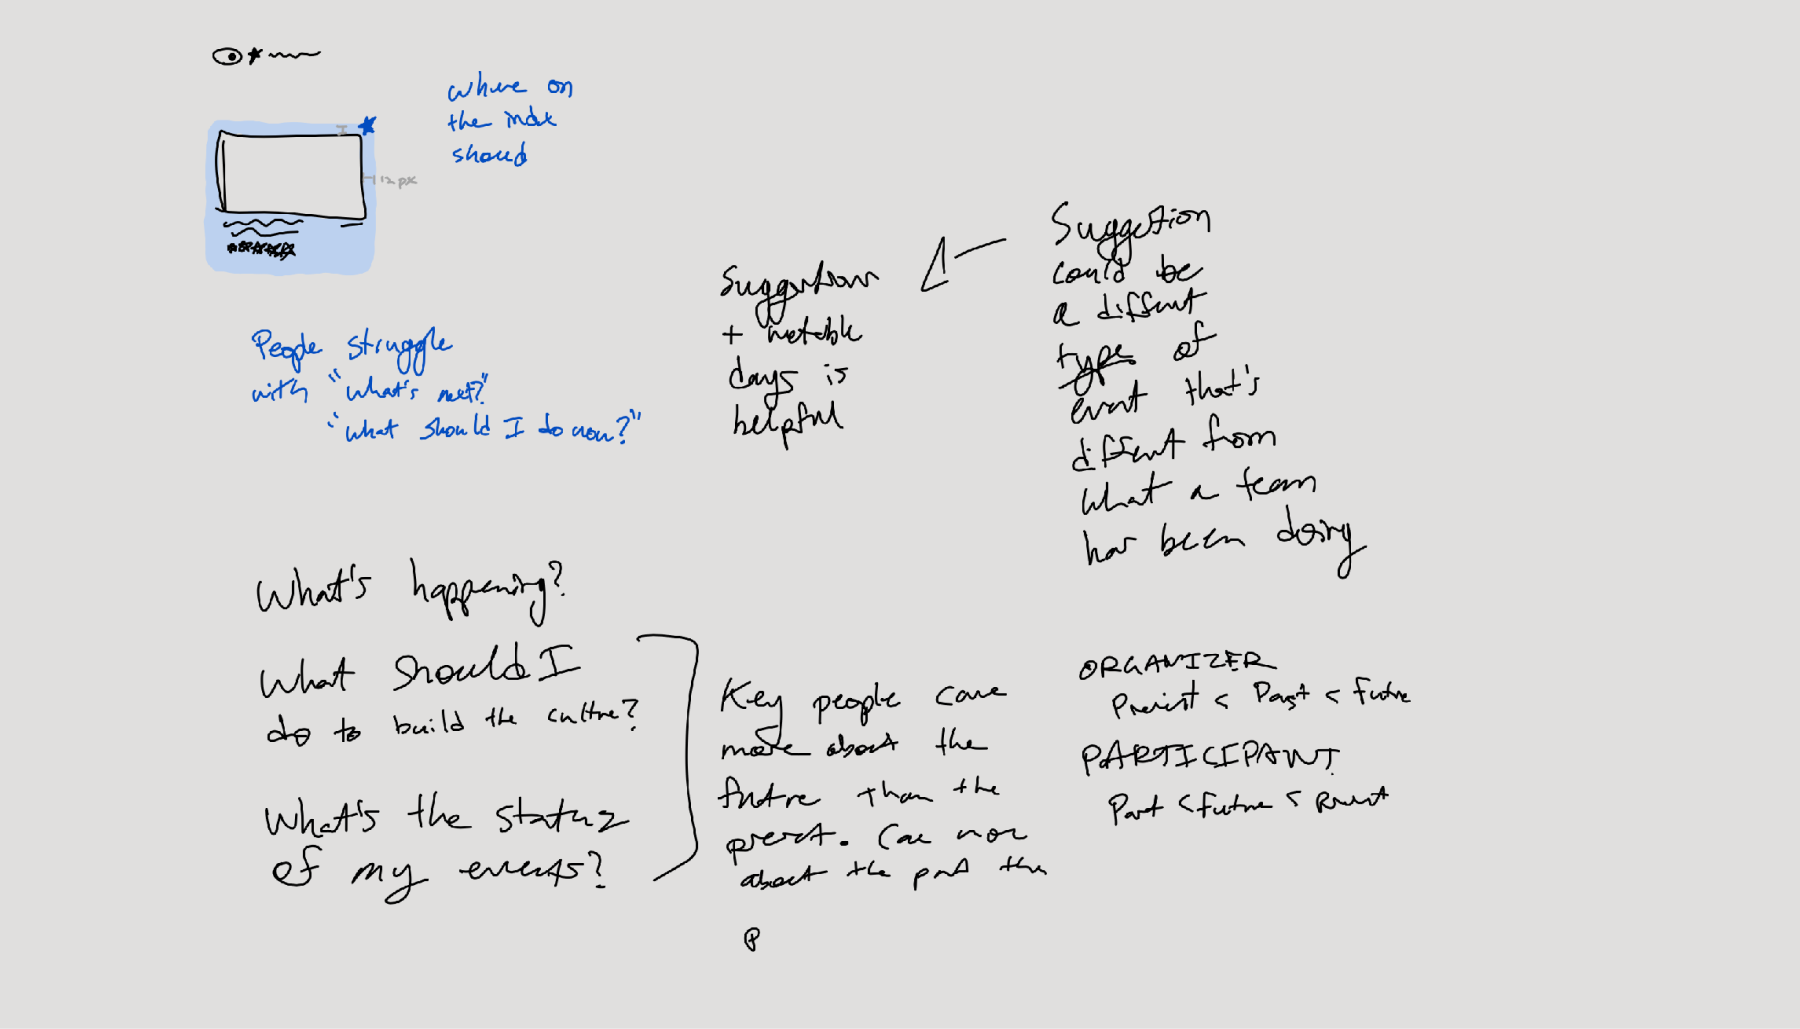 where on
the index
should
12px
People struggle
with "what's next?"
"what should I do now?"
Suggestions
+ notable
days is
helpful
Suggestion
could be
a different
type of
event that's
different from
what a team
has been doing
What's happening?
What should I
do to build the culture?
What's the status
of my events?
Key people care
more about the
future than the
present. Care more
about the past than
P
ORGANIZER
Present < Past < Future
PARTICIPANT
Past < Future < Present